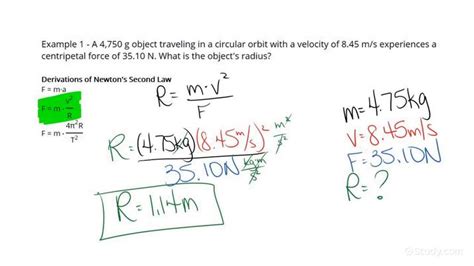 Example 1 - A 4,750 g object traveling in a circular orbit with a velocity of 8.45 m/s experiences a
centripetal force of 35.10 N. What is the object's radius?
Derivations of Newton's Second Law
F = m·a
F = m · v²/R
F = m · 4π²R/T²
R = m·v²/F
R = (4.75kg)(8.45m/s)²/35.10N m²/s² kg·m/s²
R = 1.14m
m = 4.75kg
V = 8.45m/s
F = 35.10N
R = ?
Study.com